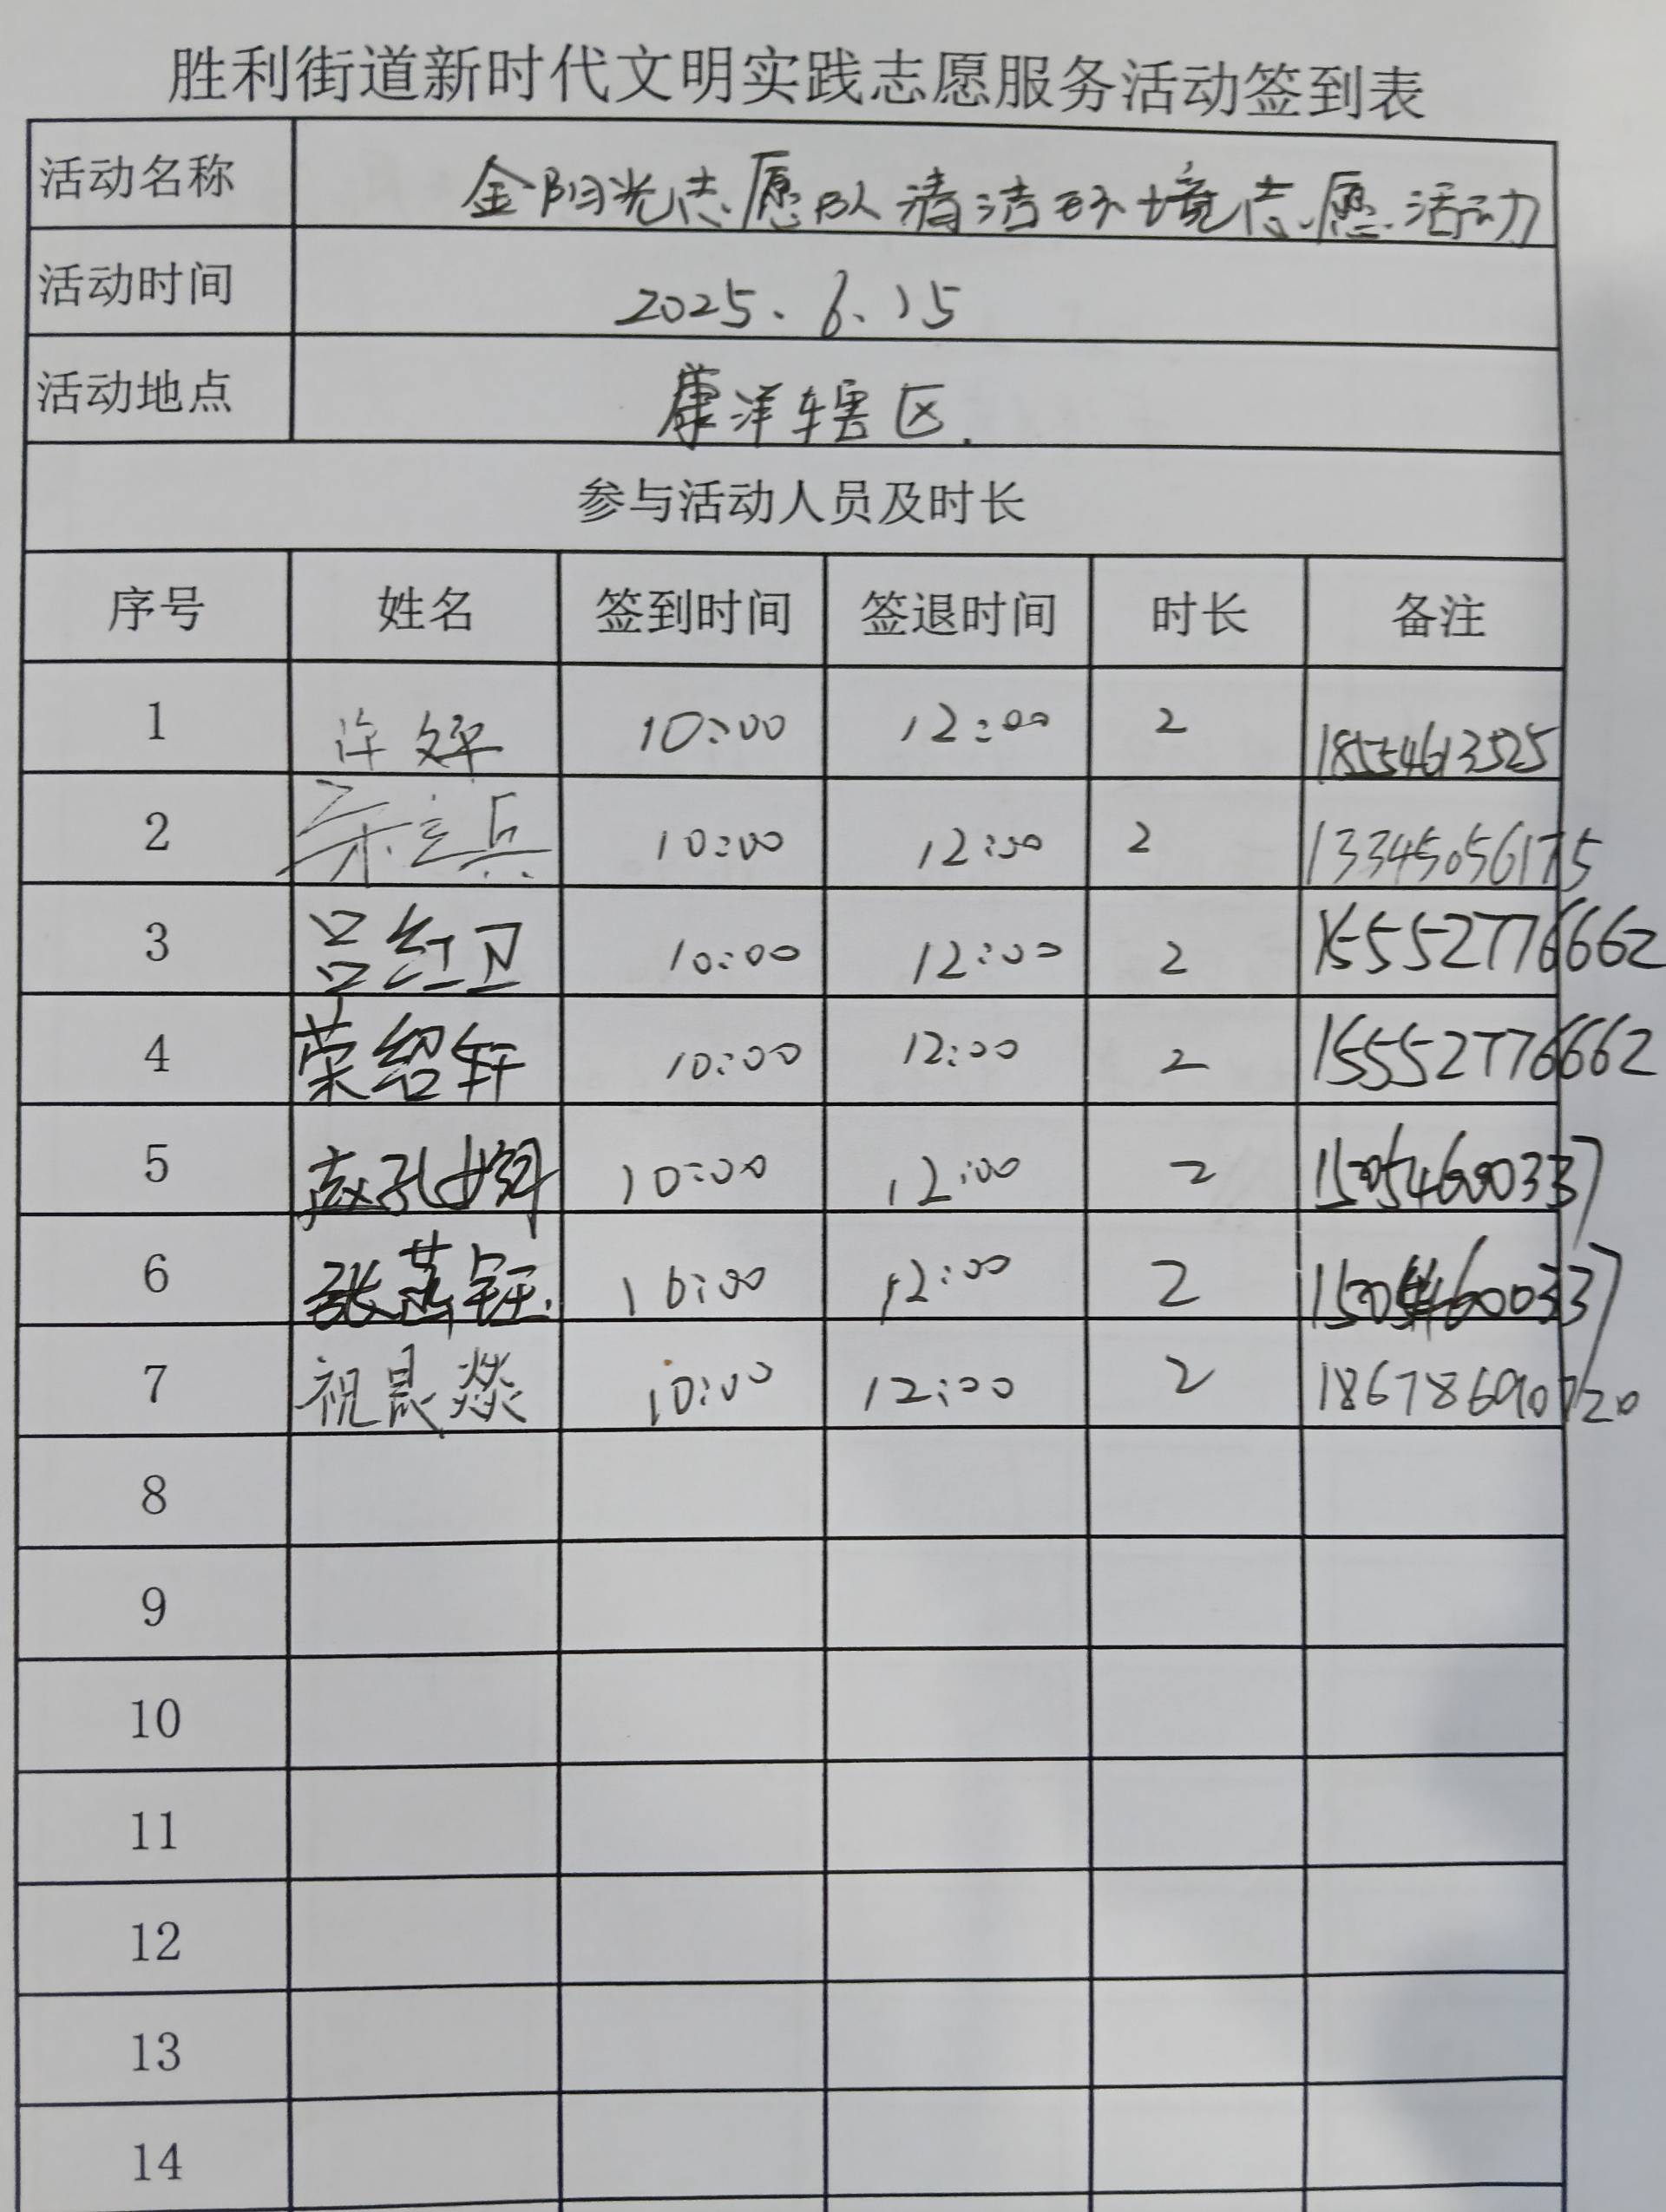 胜利街道新时代文明实践志愿服务活动签到表
活动名称 金阳光志愿队清洁环境志愿活动
活动时间 2025.6.15
活动地点 康洋辖区.
参与活动人员及时长
序号 姓名 签到时间 签退时间 时长 备注
1 许 10:00 12:00 2 18554613525
2 兵 10:00 12:00 2 13345056175
3 吕红卫 10:00 12:00 2 15552776662
4 荣绍轩 10:00 12:00 2 15552776662
5 赵孔 10:00 12:00 2 15054600337
6 张燕钰 10:00 12:00 2 15054600337
7 祝晨焱 10:00 12:00 2 18678690720
8
9
10
11
12
13
14